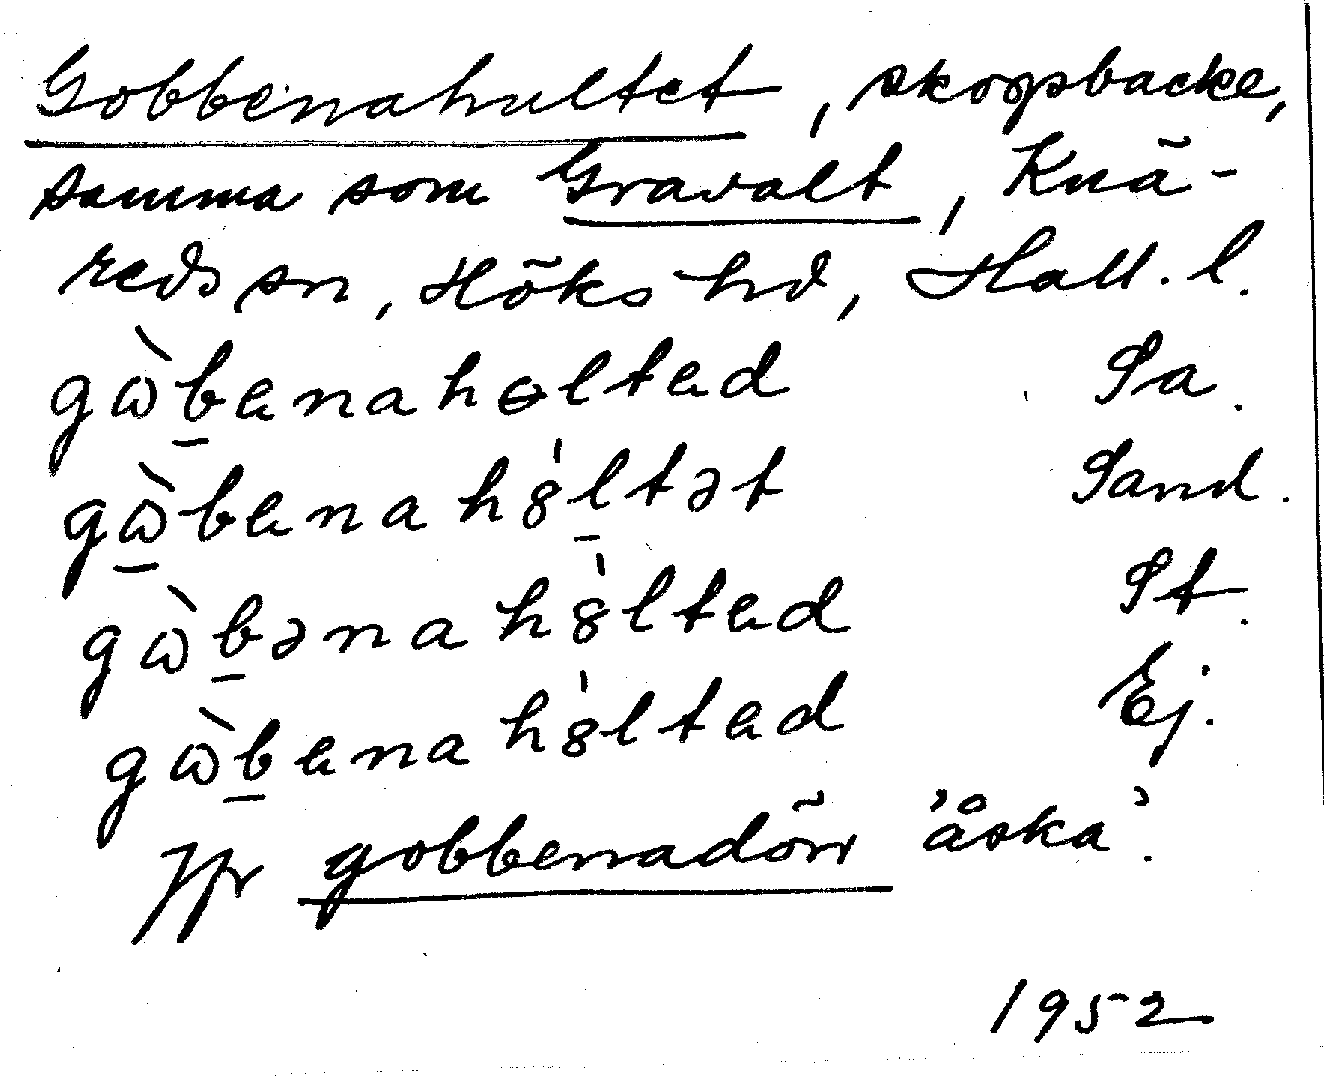 Gobbenahultet, skogsbacke,
samma som Gravalt, Knä-
reds sn, Höks hd, Hall. l.
gὼb̲enahɵltad Sa.
gὼ̲benah8̍l̲tət Sand.
gὼb̲ənah8̍ltad St.
gὼb̲enah8̍ltad Ej.
Jfr gobbenadörr 'åska'.
1952